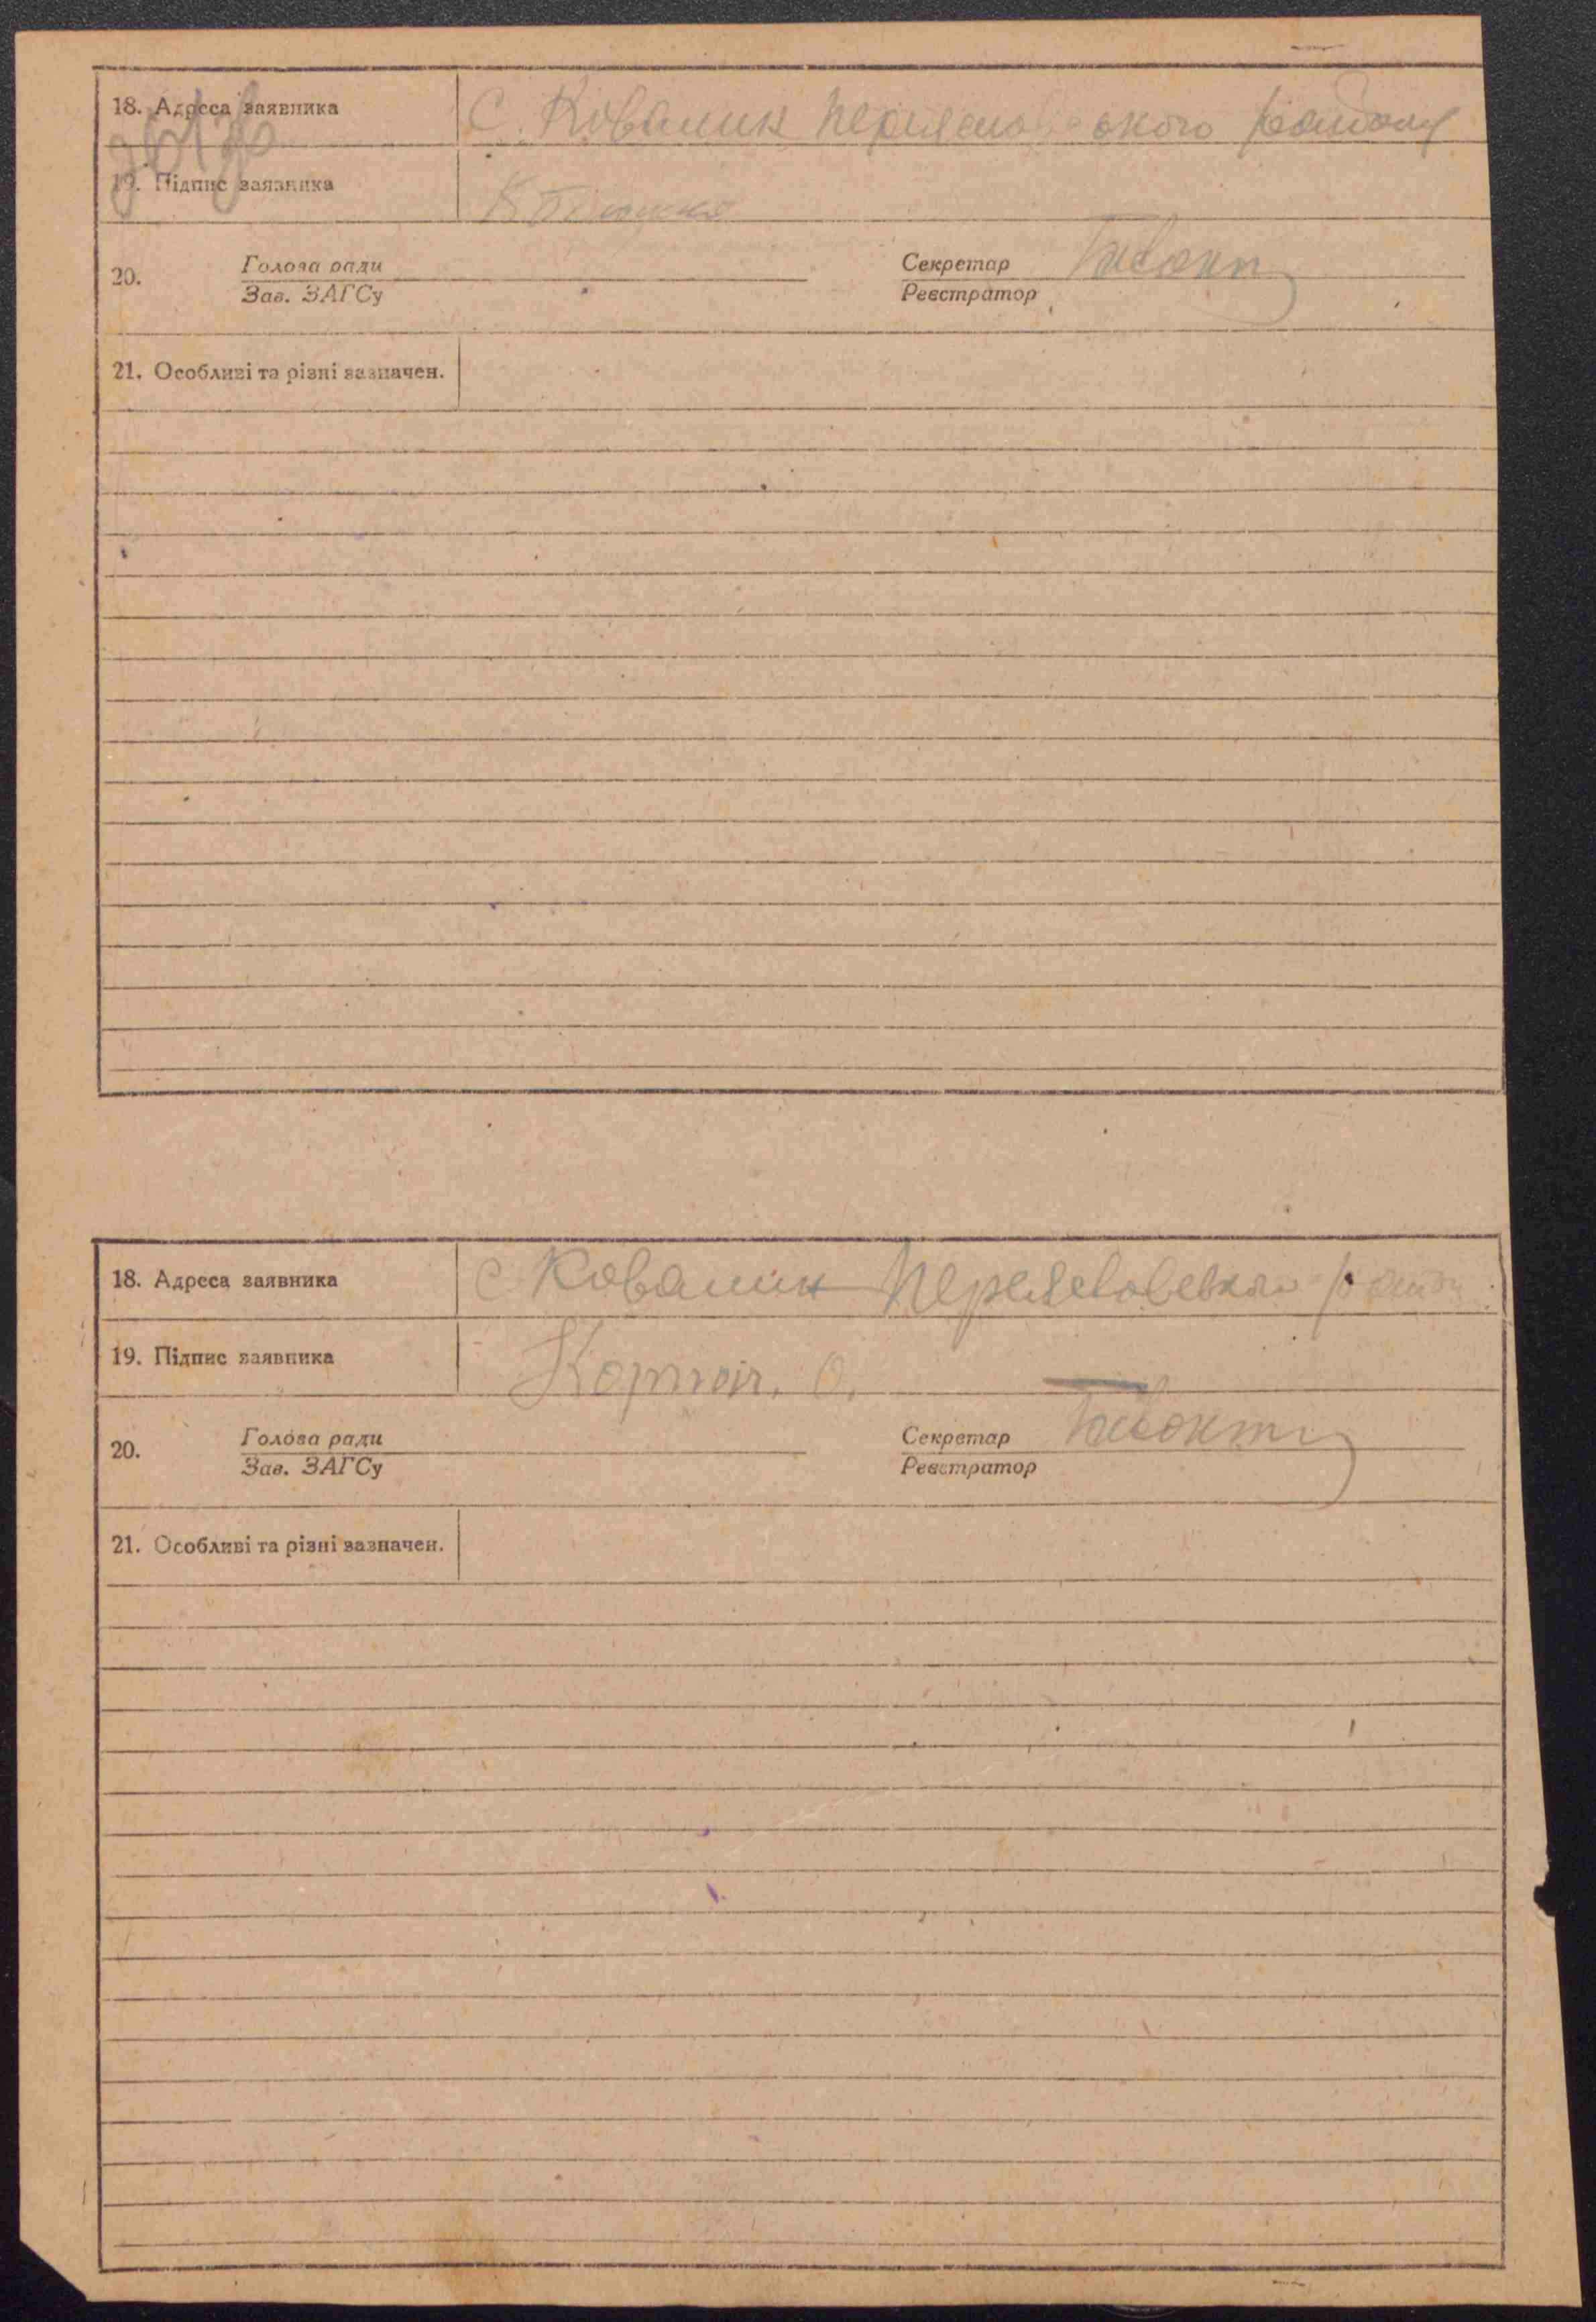 18. Адреса заявника С. Ковалин Переяславського району
19. Підпис заявника
20. Голова ради Секретар
Зав. ЗАГСу Реєстратор
21. Особливі та різні зазначен.
18. Адреса заявника С Ковалин
19. Підпис заявника О.
20. Голова ради Секретар
Зав. ЗАГСу Реєстратор
21. Особливі та різні зазначен.